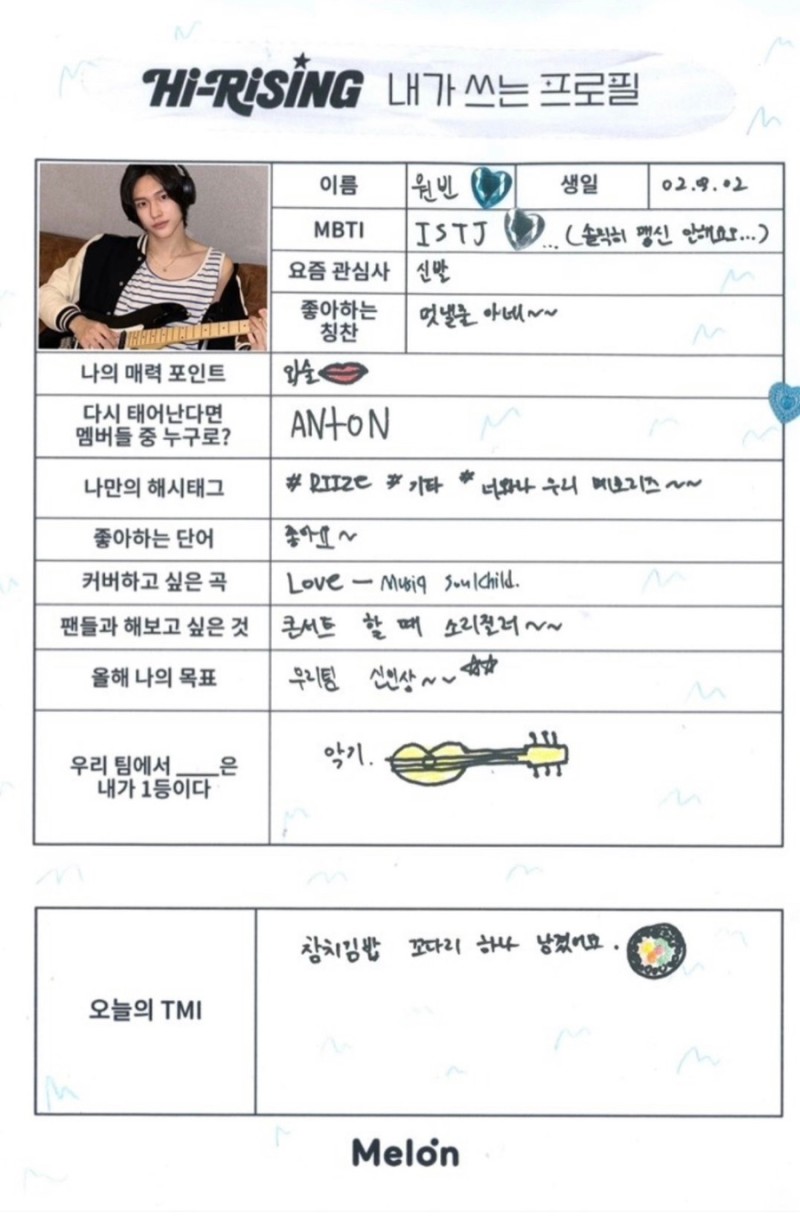 Hi-RiSiNG 내가 쓰는 프로필
이름 원빈 생일 02.9.02
MBTI ISTJ ... (솔직히 맹신 안해요...)
요즘 관심사 신발
좋아하는
칭찬
멋낼줄 아네~~
나의 매력 포인트 입술
다시 태어난다면
멤버들 중 누구로?
ANtON
나만의 해시태그 # RIIZE # 기타 # 너와나 우리 메모리즈~~
좋아하는 단어 좋아요~
커버하고 싶은 곡 Love - Musiq Soulchild.
팬들과 해보고 싶은 것 콘서트 할 때 소리질러~~
올해 나의 목표 우리팀 신인상~~
우리 팀에서 ____은
내가 1등이다
악기.
오늘의 TMI 참치김밥 꼬다리 하나 남겼어요.
Melon